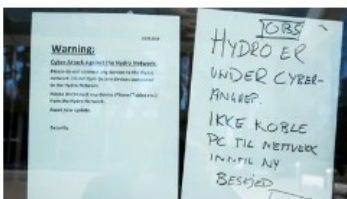 Warning:
Cyber Attack Against the Hydro Network.
Please do not connect any devices to the Hydro
Network. Do not turn on any devices connected
to the Hydro Network.
Please disconnect any device (Phone/Tablet etc.)
from the Hydro Network.
Await new update.
Security
OBS
HYDRO ER
UNDER CYBER-
ANGREP.
IKKE KOBLE
PC TIL NETTVERK
INNTIL NY
BESKJED